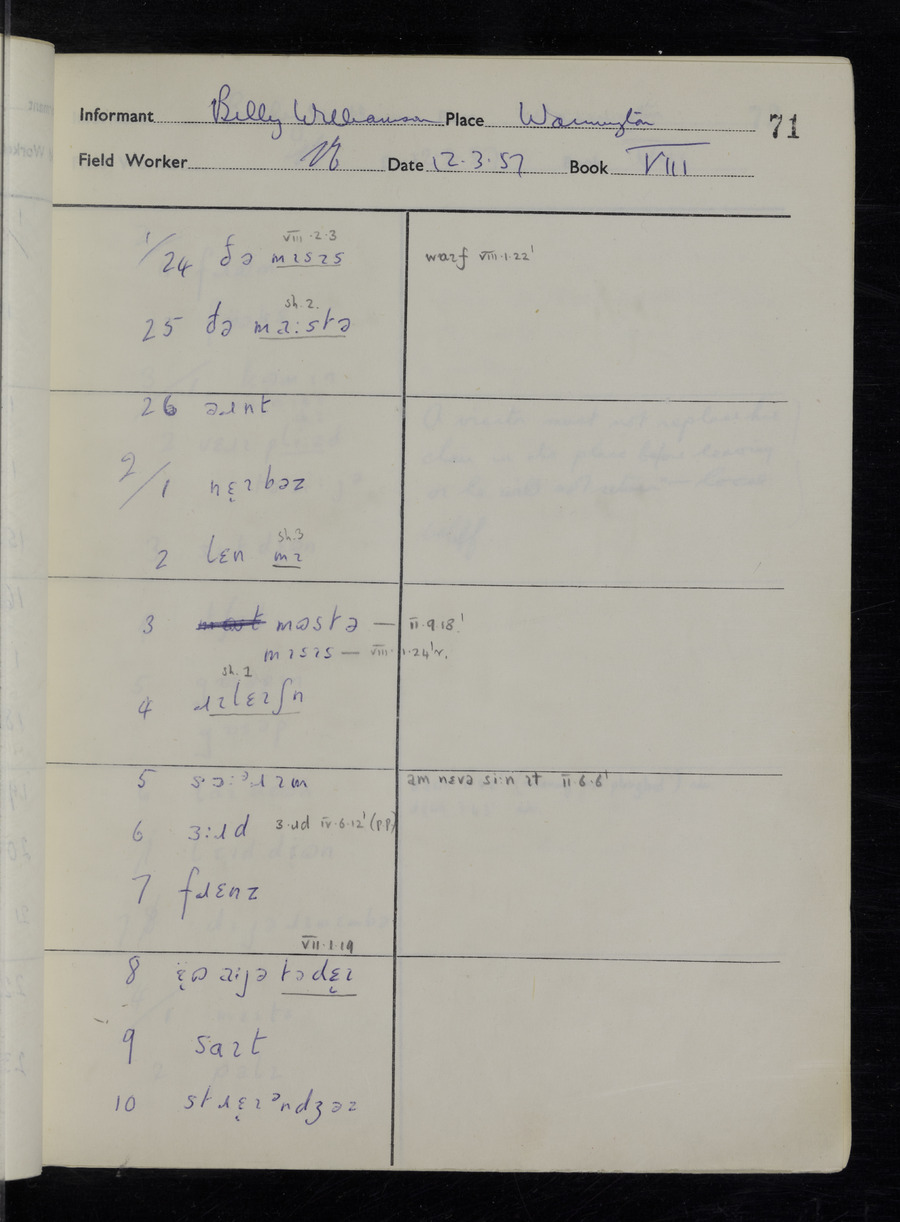 Informant Billy Williamson Place Warmington 71
Field Worker Date 12.3.57 Book VIII
VIII.2.3
1/24 ðə mɪsɪs warf VIII.1.22'
sh.2.
25 ðə ma:stə
26 ant
2/1 nɛɪbəz
sh.3
2 lɛn mɪ
3 məstə — II.9.18'
mɪsɪs — VIII.1.24'r.
sh.1
4 ɹɪlɛɪʃn
5 am nɛvə si:n ɪt II.6.6'
6 ɜ:ɹd ɜ·ɹd IV.6.12' (p.p)
7 fɹɛnz
VII.1.19
8 tədɛɪ
9 saɪt
10 stɹɛɪndʒəz